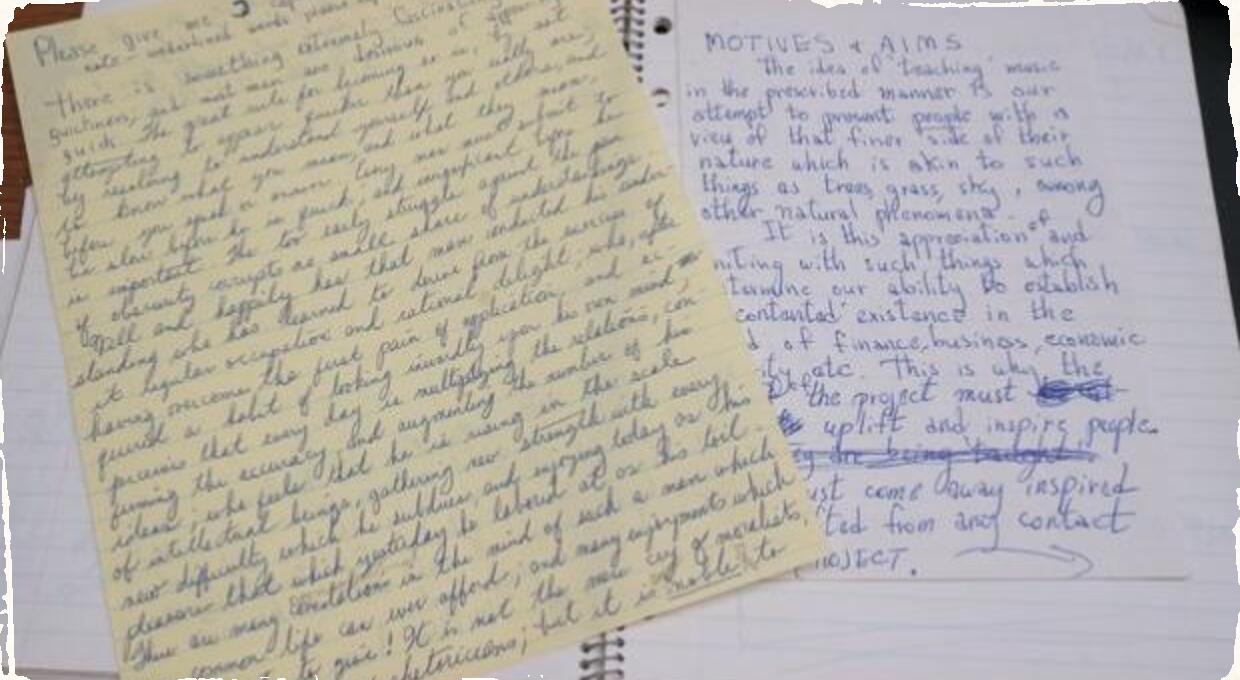 Please give me
note - underlined words
there is something extremely fascinating
quickness, and most men are desirous of appearing
quick. The great rule for becoming so is, by not
attempting to appear quicker than you really are;
by resolving to understand yourself and others, and
to know what you mean, and what they mean,
before you speak or answer. Every man must submit to
be slow before he is quick; and insignificant before he
is important. The too early struggle against the pain
of obscurity corrupts no small share of understandings.
Well and happily has that man conducted his under-
standing who has learned to derive from the exercise of
it regular occupation and rational delight; who, after
having overcome the first pain of application, and ac-
quired a habit of looking inwardly upon his own mind,
perceives that every day is multiplying the relations, con-
firming the accuracy, and augmenting the number of his
ideas; who feels that he is rising in the scale
of intellectual beings, gathering new strength with every
new difficulty which he subdues and enjoying today as his
pleasure that which yesterday he labored at as his toil.
There are many consolations in the mind of such a man which
common life can ever afford; and many enjoyments which
to give! It is not the mere cry of moralists,
rhetoricians; but it is noble to
MOTIVES & AIMS
The idea of 'teaching' music
in the prescribed manner is our
attempt to present people with a
view of that finer side of their
nature which is akin to such
things as trees, grass, sky, among
other natural phenomena.
It is this appreciation of and
uniting with such things which
termine our ability to establish
contented existence in the
of finance, business, economic
ity etc. This is why the
the project must
uplift and inspire people.
ey are being taught.
ust come away inspired
ted from any contact
ROJECT.